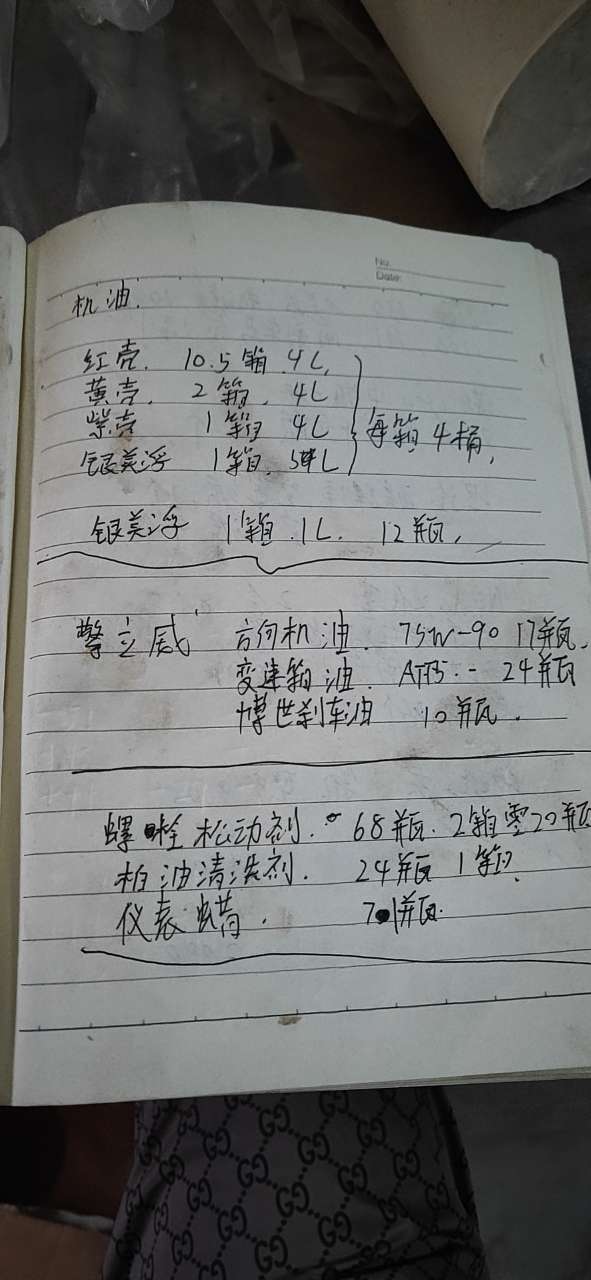 No.
Date
机油.
红壳. 10.5箱 4L.
黄壳. 2箱. 4L
紫壳 1箱 4L
银美浮 1箱. 4L
每箱 4桶,
银美浮 1箱. 1L. 12瓶,
擎立威 方向机油. 75W-90 17瓶.
变速箱油. - 24瓶
博世刹车油 10瓶.
螺栓松动剂. 68瓶. 2箱零20瓶
柏油清洗剂. 24瓶 1箱.
仪表蜡. 瓶.